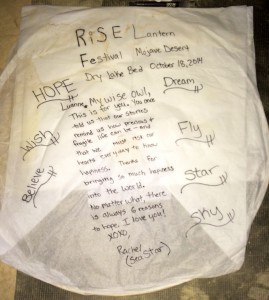 RiSE Lantern
Festival Mojave Desert
Dry Lake Bed October 18, 2014
HOPE
Dream
My wise Owl,
This is for you. You once
told us that our stories
remind us how precious &
fragile life can be - and
that we must risk our
hearts everyday to know
happiness. Thanks for
bringing so much happiness
into the world.
No matter what, there
is always 6 reasons
to hope. I love you!
XOXO,
Rachel
(Sea Star)
Wish
Believe
Fly
Star
Sky